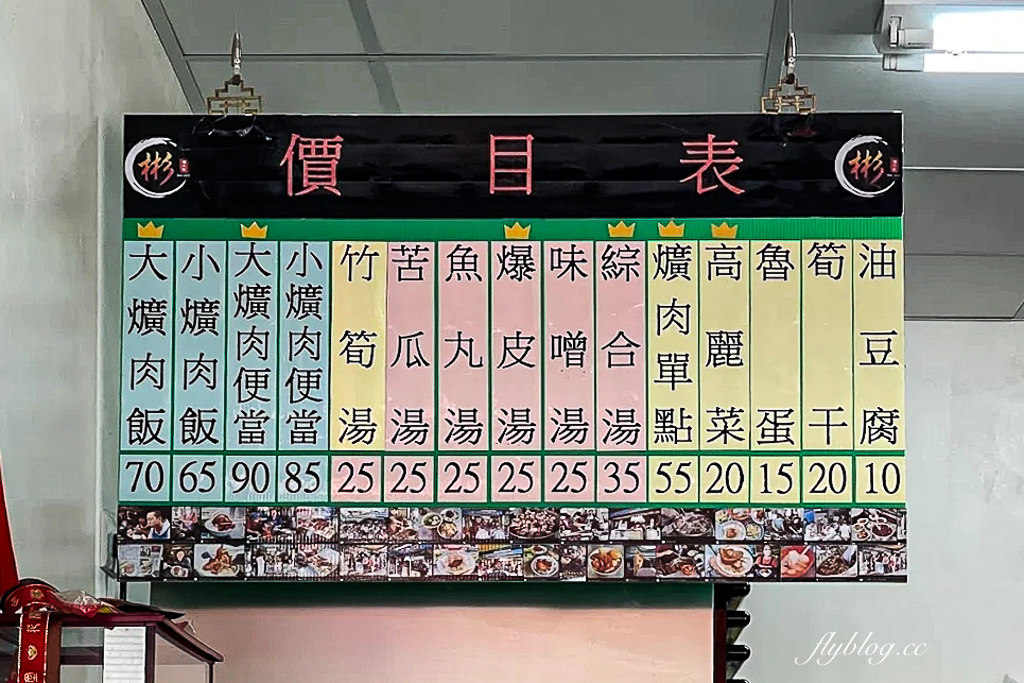 價目表
彬
彬
大爌肉飯 70
小爌肉飯 65
大爌肉便當 90
小爌肉便當 85
竹筍湯 25
苦瓜湯 25
魚丸湯 25
爆皮湯 25
味噌湯 25
綜合湯 35
爌肉單點 55
高麗菜 20
魯蛋 15
筍干 20
油豆腐 10
flyblog.cc